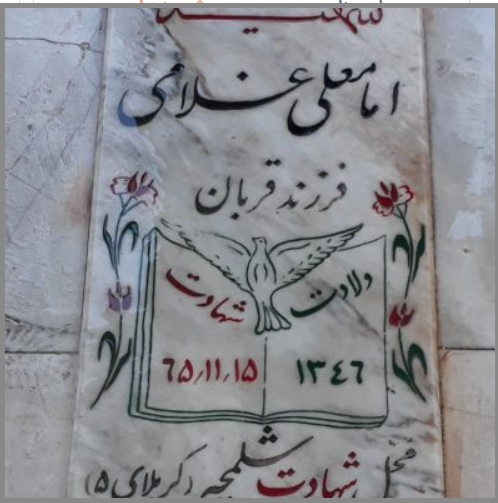 شهید
امامعلی غلامی
فرزند قربان
ولادت شهادت
۱۳۴۶ ۶۵/۱۱/۱۵
محل شهادت شلمچه (کربلای ۵)